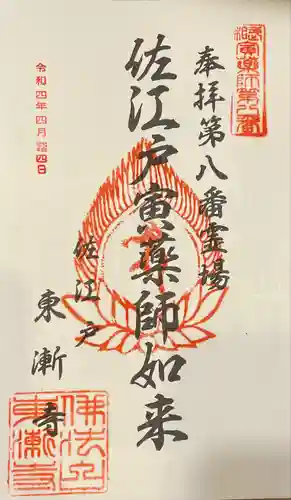 武相寅薬師第八番
奉拝第八番霊場
佐江戸寅薬師如来
佐江戸
東漸寺
令和四年四月 四日
東漸寺